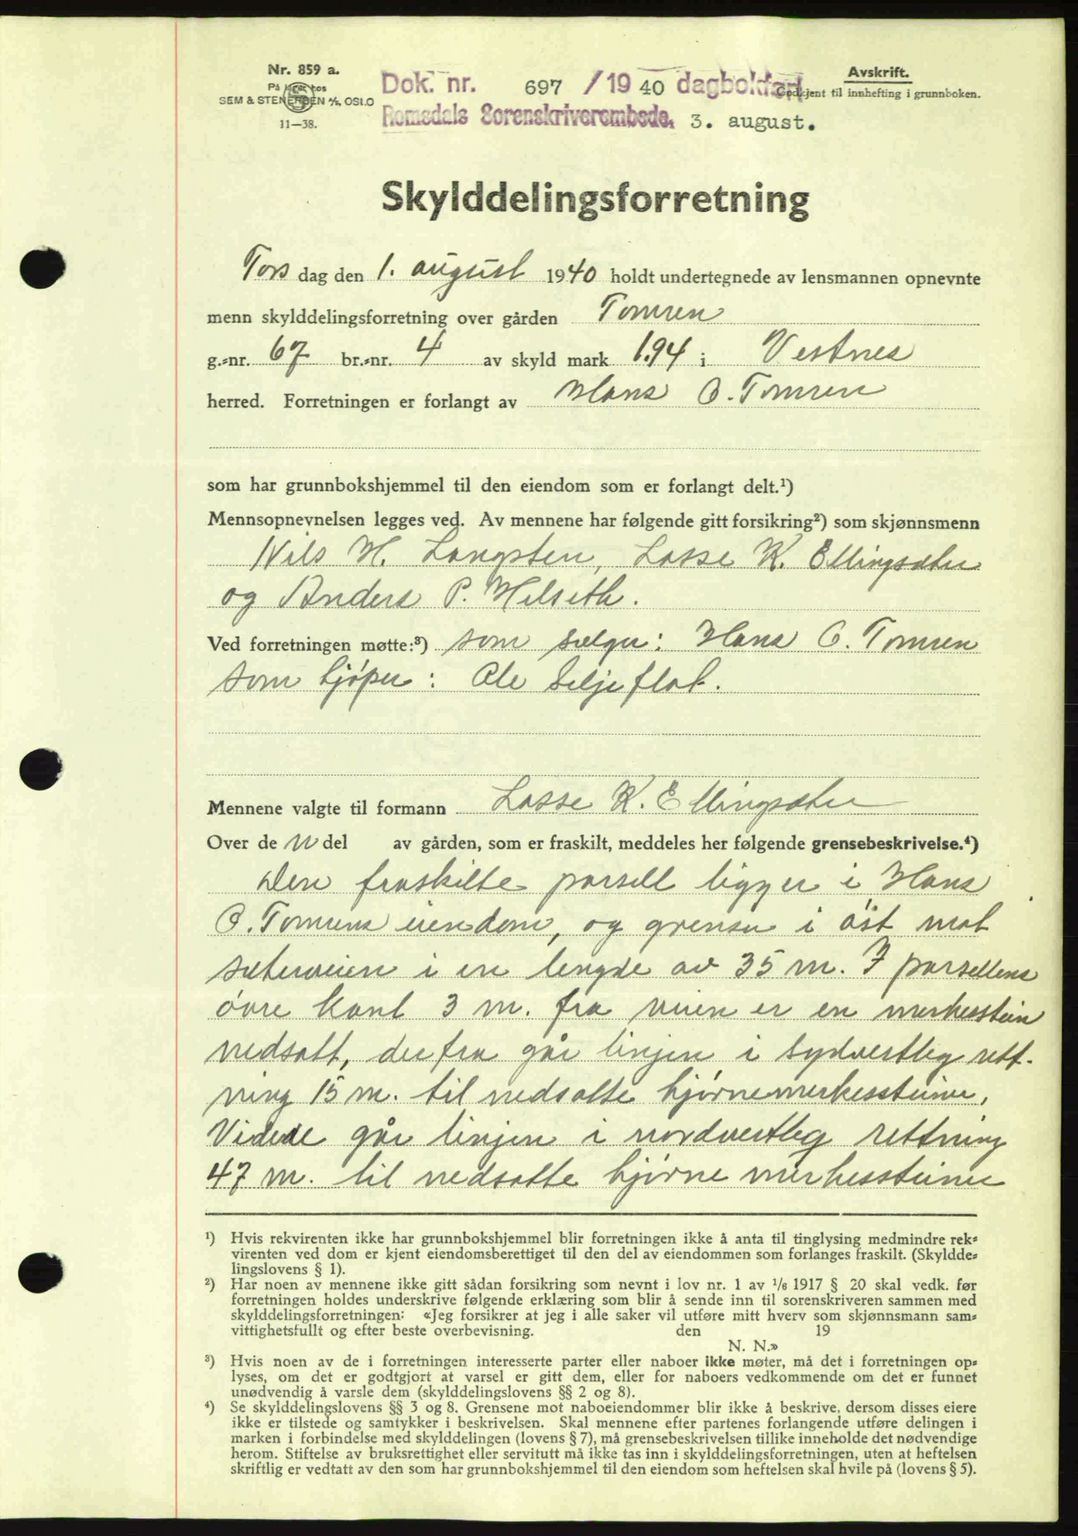 Nr. 859 a.
På lager hos
SEM & STENERSEN A/S, OSLO
11—38.
Dok. nr. 697 /1940 dagbokført
Romsdals Sorenskriverembede. 3. august.
Avskrift.
Godkjent til innhefting i grunnboken.
Skylddelingsforretning
Tors dag den 1. august 1940 holdt undertegnede av lensmannen opnevnte
menn skylddelingsforretning over gården Tomren
g.-nr. 67 br.-nr. 4 av skyld mark 1.94 i Vestnes
herred. Forretningen er forlangt av Hans O. Tomren
som har grunnbokshjemmel til den eiendom som er forlangt delt.¹)
Mennsopnevnelsen legges ved. Av mennene har følgende gitt forsikring²) som skjønnsmenn
Nils H. Langsten, Lasse K. Ellingsæter
og Anders P. Helseth.
Ved forretningen møtte:³) som selger: Hans O. Tomren
som kjøper: Ole Seljeflot.
Mennene valgte til formann Lasse K. Ellingsæter
Over de n del av gården, som er fraskilt, meddeles her følgende grensebeskrivelse.⁴)
Den fraskilte parsell ligger i Hans
O. Tomrens eiendom, og grenser i øst mot
seterveien i en lengde av 35 m. I parsellens
øvre kant 3 m. fra veien er en merkesstein
nedsatt, derfra går linjen i sydvestleg rett-
ning 15 m. til nedsatte hjørnemerkessteine,
Videre går linjen i nordvestleg rettning
47 m. til nedsatte hjørne merkessteine
¹) Hvis rekvirenten ikke har grunnbokshjemmel blir forretningen ikke å anta til tinglysing medmindre rek-
virenten ved dom er kjent eiendomsberettiget til den del av eiendommen som forlanges fraskilt. (Skyldde-
lingslovens § 1).
²) Har noen av mennene ikke gitt sådan forsikring som nevnt i lov nr. 1 av 1/6 1917 § 20 skal vedk. før
forretningen holdes underskrive følgende erklæring som blir å sende inn til sorenskriveren sammen med
skylddelingsforretningen: «Jeg forsikrer at jeg i alle saker vil utføre mitt hverv som skjønnsmann sam-
vittighetsfullt og efter beste overbevisning. den 19
N. N.»
³) Hvis noen av de i forretningen interesserte parter eller naboer ikke møter, må det i forretningen op-
lyses, om det er godtgjort at varsel er gitt dem, eller for naboers vedkommende om det er funnet
unødvendig å varsle dem (skylddelingslovens §§ 2 og 8).
⁴) Se skylddelingslovens §§ 3 og 8. Grensene mot naboeiendommer blir ikke å beskrive, dersom disses eiere
ikke er tilstede og samtykker i beskrivelsen. Skal mennene efter partenes forlangende utføre delingen i
marken i forbindelse med skylddelingen (lovens § 7), må grensebeskrivelsen tillike inneholde det nødvendige
herom. Stiftelse av bruksrettighet eller servitutt må ikke tas inn i skylddelingsforretningen, uten at heftelsen
skriftlig er vedtatt av den som har grunnbokshjemmel til den eiendom som heftelsen skal hvile på (lovens § 5).